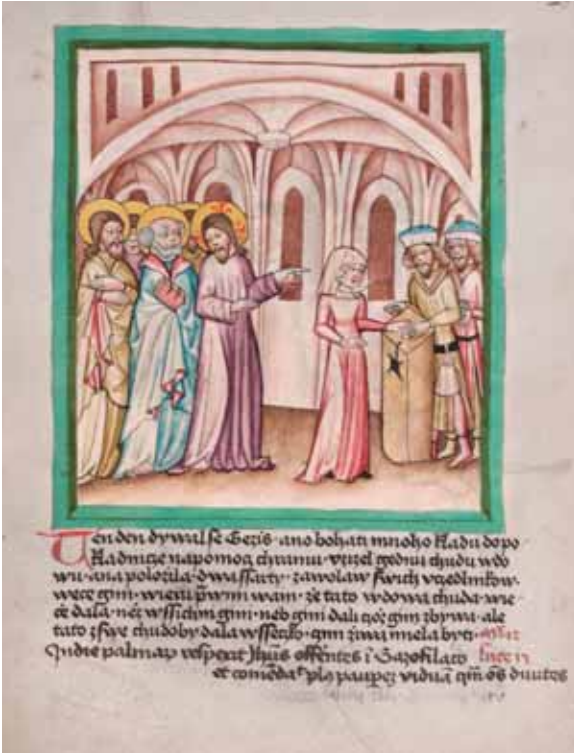 Ten den dywal se Gezis · ano bohati mnoho kladu do po
kladnicze na pomoc chramu · vzrzel gednu chudu wdo
wu · ana polozila · dwa ssarty · zawolaw swich vczedlnikow
wece gim · wieru prwim wam · ze tato wdowa chuda · wie
ce dala · nez wssichni gini · neb gini dali czoz gim zbywa · ale
tato z swe chudoby dala wssecko · czim ziwa miela byti ·
In die palmarum vespere Jhus offerentes i Gazofilatio luce 21
et comedat plus pauperem viduam qm os diuites